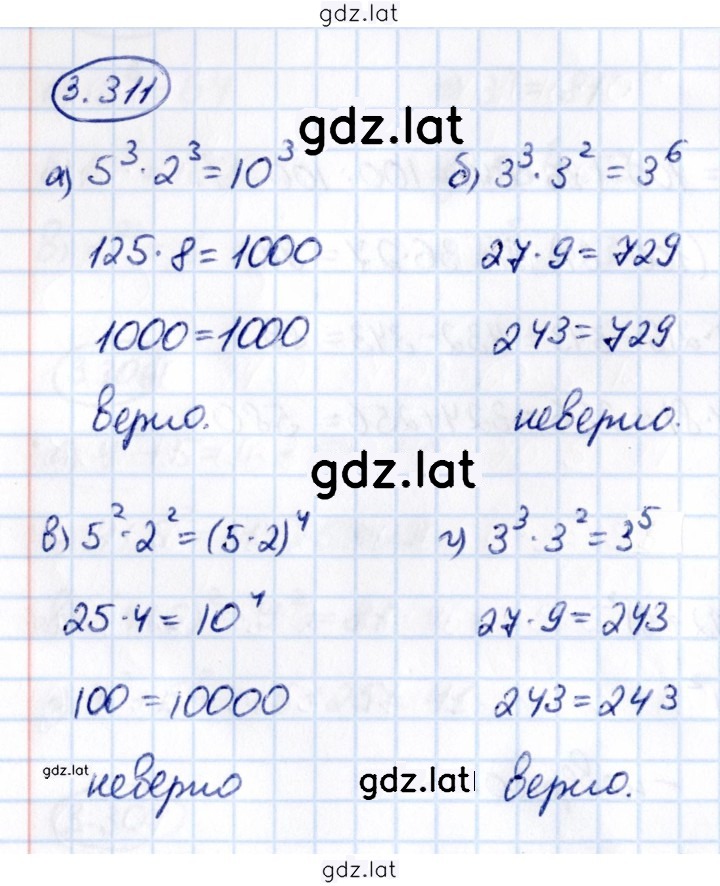 gdz.lat
3.311
gdz.lat
а) 5³·2³=10³
125·8=1000
1000=1000
верно.
б) 3³·3²=3⁶
27·9=729
243=729
неверно.
gdz.lat
в) 5²·2²=(5·2)⁴
25·4=10⁴
100=10000
неверно
г) 3³·3²=3⁵
27·9=243
243=243
верно.
gdz.lat
gdz.lat
gdz.lat